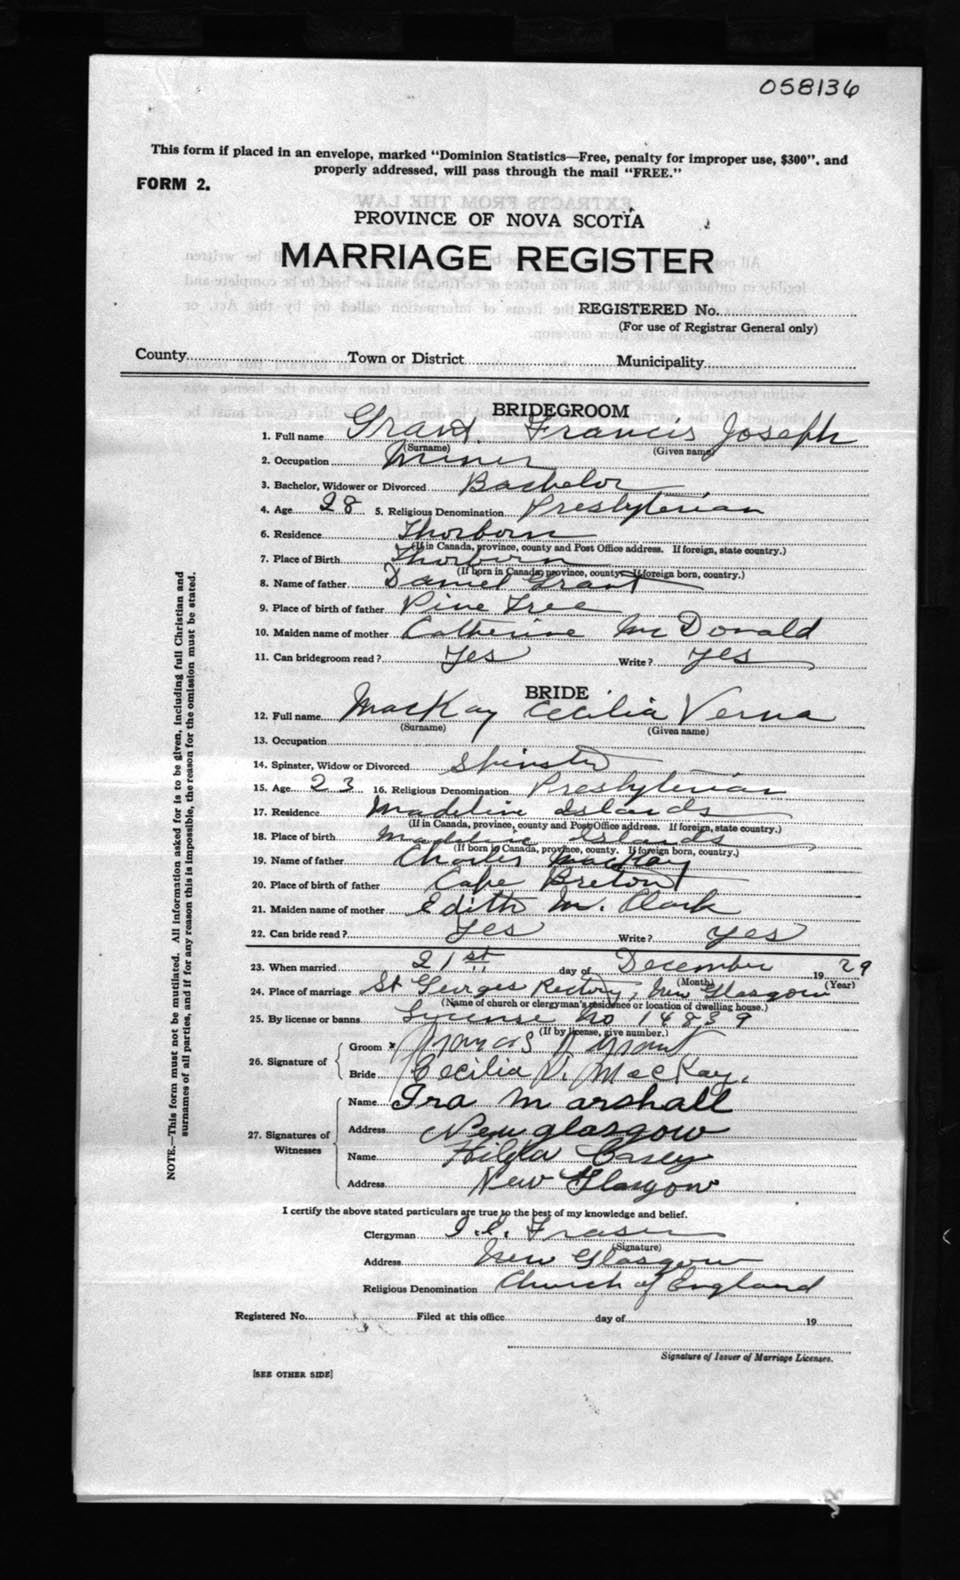 058136
This form if placed in an envelope, marked "Dominion Statistics—Free, penalty for improper use, $300", and
properly addressed, will pass through the mail "FREE."
FORM 2.
PROVINCE OF NOVA SCOTIA
MARRIAGE REGISTER
REGISTERED No.
(For use of Registrar General only)
County Town or District Municipality
BRIDEGROOM
1. Full name Grant Francis Joseph
(Surname) (Given name)
2. Occupation Miner
3. Bachelor, Widower or Divorced Bachelor
4. Age 28 5. Religious Denomination Presbyterian
6. Residence Thorborn
(If in Canada, province, county and Post Office address. If foreign, state country.)
7. Place of Birth Thorburn
(If born in Canada, province, county. If foreign born, country.)
8. Name of father Daniel Grant
9. Place of birth of father Pine Tree
10. Maiden name of mother Catherine McDonald
11. Can bridegroom read? Yes Write? yes
BRIDE
12. Full name MacKay Cecilia Verna
(Surname) (Given name)
13. Occupation
14. Spinster, Widow or Divorced Spinster
15. Age 23 16. Religious Denomination Presbyterian
17. Residence Madeline Islands
(If in Canada, province, county and Post Office address. If foreign, state country.)
18. Place of birth Madeline Islands
(If born in Canada, province, county. If foreign born, country.)
19. Name of father Charles MacKay
20. Place of birth of father Cape Breton
21. Maiden name of mother Edith M. Clark
22. Can bride read? Yes Write? yes
23. When married 21st day of December 1929
(Month) (Year)
24. Place of marriage St Georges Rectory, New Glasgow
(Name of church or clergyman's residence or location of dwelling house.)
25. By license or banns License No 14839
(If by license, give number.)
26. Signature of
Groom x Francis J Grant
Bride Cecilia V. MacKay.
27. Signatures of Witnesses
Name Ira Marshall
Address New glasgow
Name Hilda Casey
Address New Glasgow
I certify the above stated particulars are true to the best of my knowledge and belief.
Clergyman Fraser
(Signature)
Address New Glasgow
Religious Denomination Church of England
Registered No. Filed at this office day of 19
Signature of Issuer of Marriage Licenses.
[SEE OTHER SIDE]
NOTE.—This form must not be mutilated. All information asked for is to be given, including full Christian and
surnames of all parties, and if for any reason this is impossible, the reason for the omission must be stated.